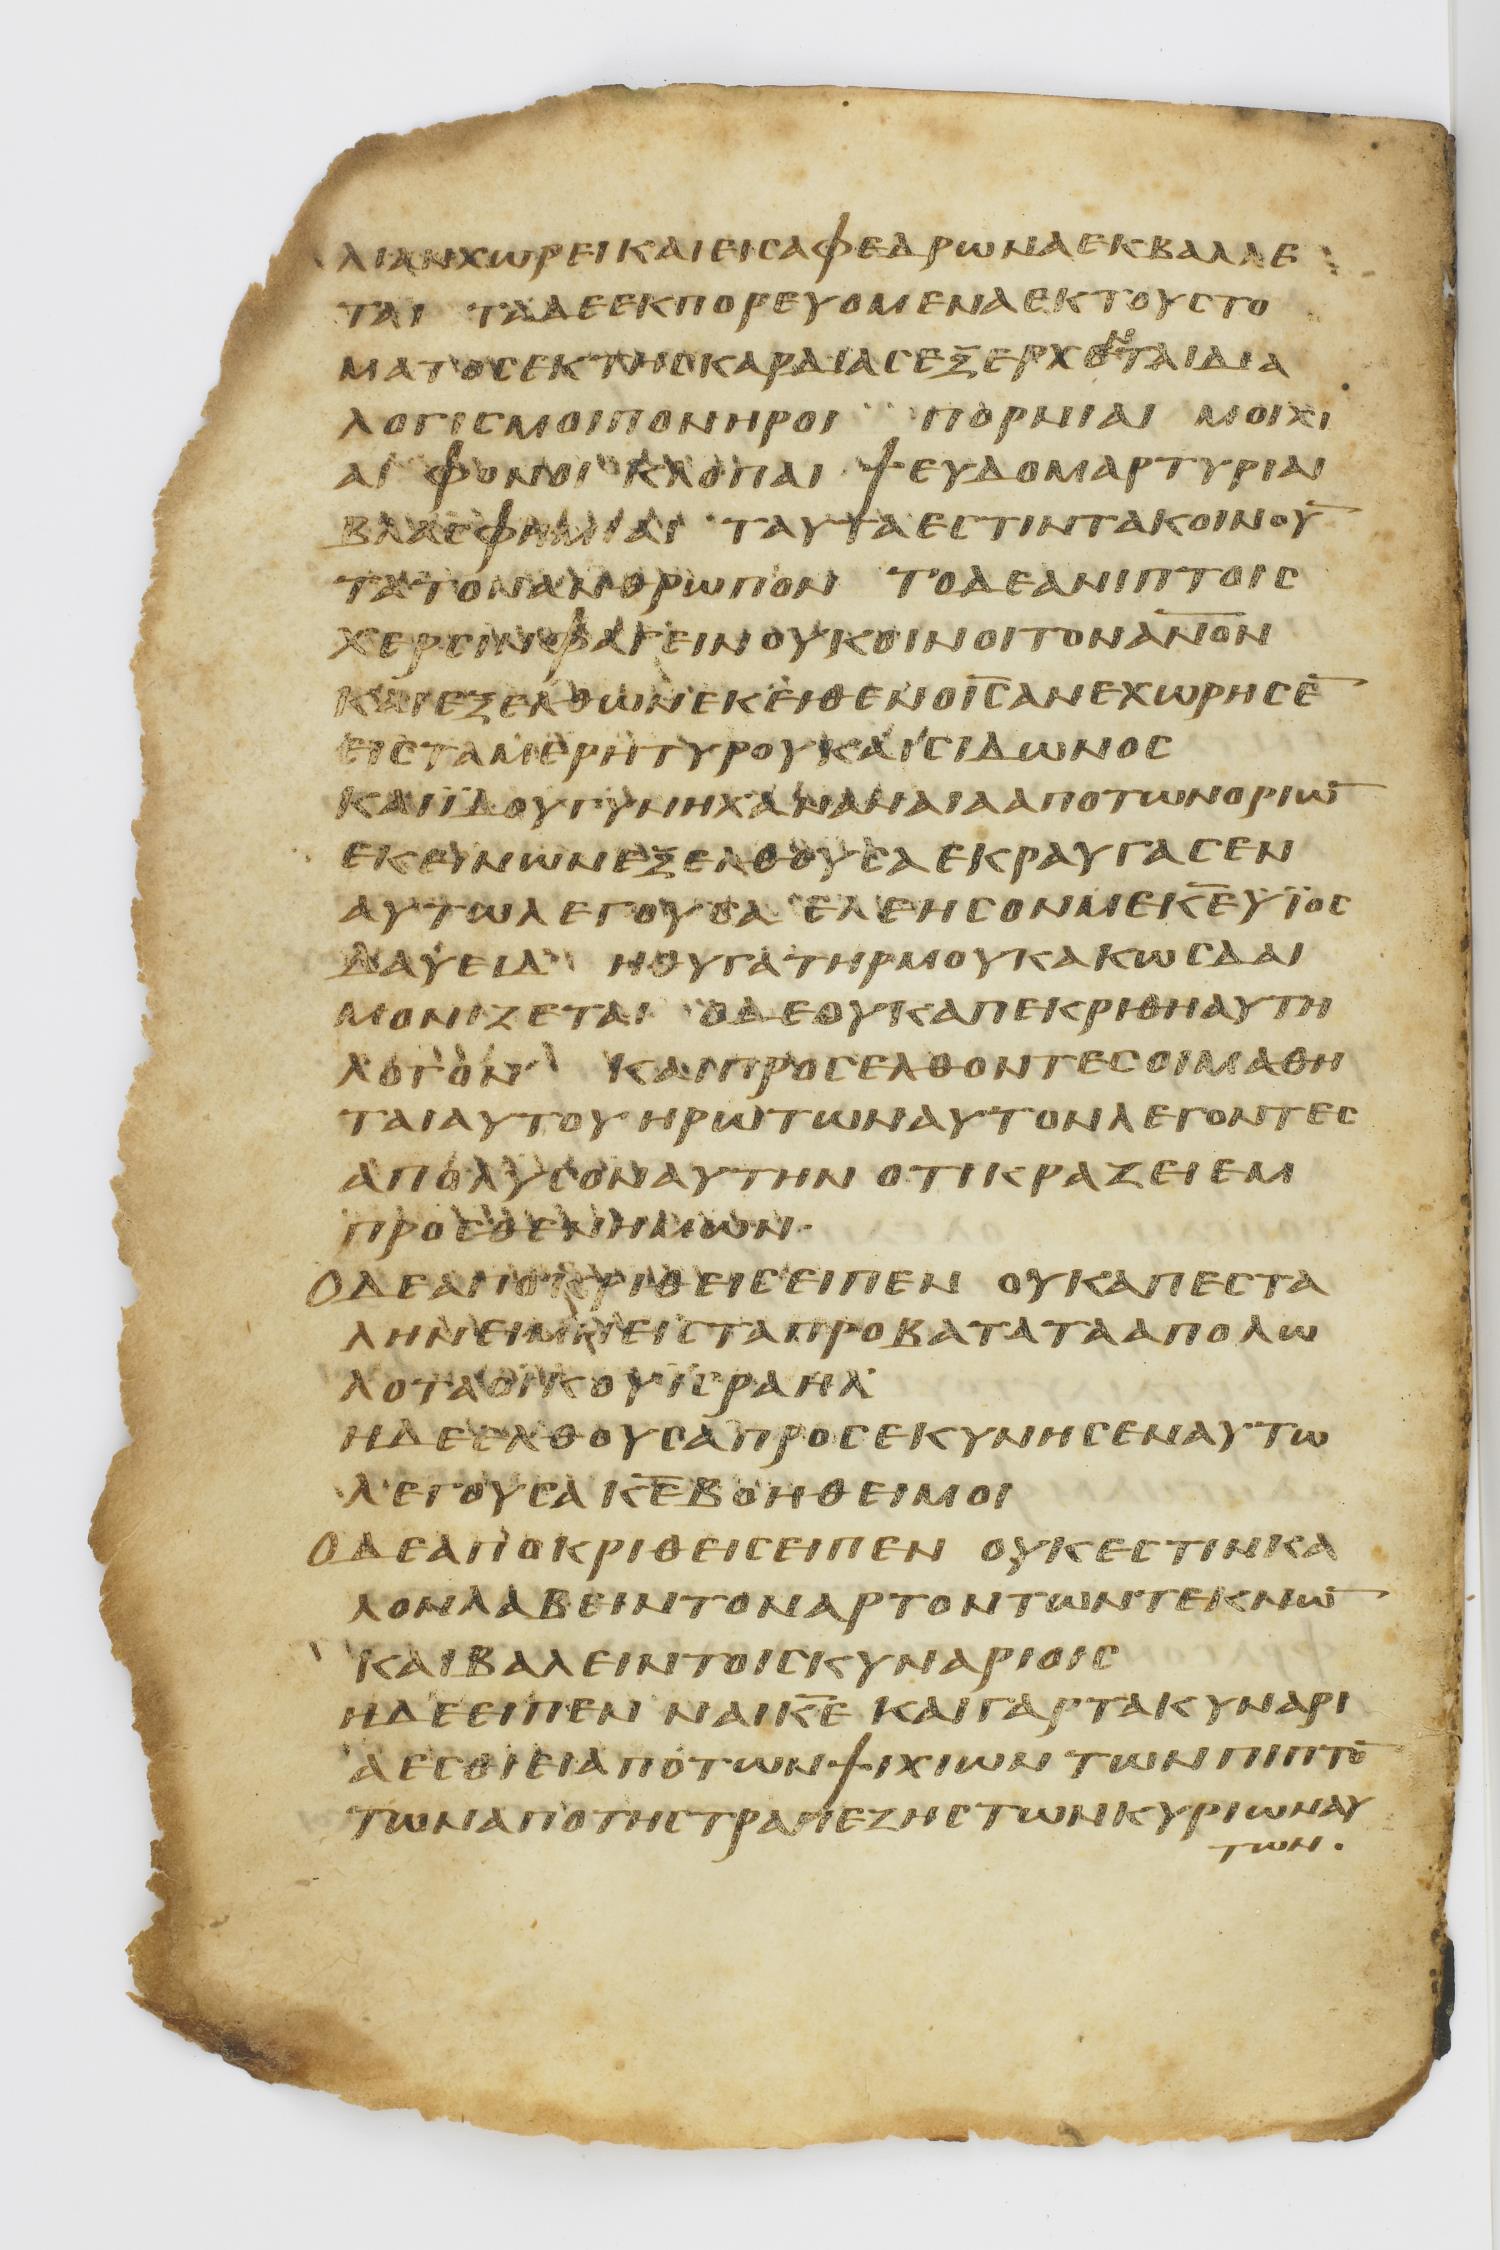 ΛΙΑΝΧωΡΕΙΚΑΙΕΙCΑΦΕΔΡωΝΑΕΚΒΑΛΛΕ
ΤΑΙ ΤΑΔΕΕΚΠΟΡΕΥΟΜΕΝΑΕΚΤΟΥCΤΟ
ΜΑΤΟCΕΚΤΗCΚΑΡΔΙΑCΕΞΕΡΧΟΝΤΑΙΔΙΑ
ΛΟΓΙCΜΟΙΠΟΝΗΡΟΙ ΠΟΡΝΙΑΙ ΜΟΙΧΙ
ΑΙ ΦΟΝΟΙ ΚΛΟΠΑΙ ΨΕΥΔΟΜΑΡΤΥΡΙΑΙ
ΒΛΑCΦΗΜΙΑΙ ΤΑΥΤΑΕCΤΙΝΤΑΚΟΙΝΟΥ̅
ΤΑΤΟΝΑΝΘΡωΠΟΝ ΤΟΔΕΑΝΙΠΤΟΙC
ΧΕΡCΙΝΦΑΓΕΙΝΟΥΚΟΙΝΟΙΤΟΝΑ̅Ν̅Ο̅Ν
ΚΑΙΕΞΕΛΘωΝΕΚΕΙΘΕΝΟΙ̅C̅ΑΝΕΧωΡΗCΕ̅
ΕΙCΤΑΜΕΡΗΤΥΡΟΥΚΑΙCΙΔωΝΟC
ΚΑΙΪΔΟΥΓΥΝΗΧΑΝΑΝΑΙΑΑΠΟΤωΝΟΡΙω̅
ΕΚΕΙΝωΝΕΞΕΛΘΟΥCΑΕΚΡΑΥΓΑCΕΝ
ΑΥΤωΛΕΓΟΥCΑ ΕΛΕΗCΟΝΜΕΚ̅Ε̅ΥΪΟC
ΔΑΥΕΙΔ ΗΘΥΓΑΤΗΡΜΟΥΚΑΚωCΔΑΙ
ΜΟΝΙΖΕΤΑΙ ΟΔΕΟΥΚΑΠΕΚΡΙΘΗΑΥΤΗ
ΛΟΓΟΝ ΚΑΙΠΡΟCΕΛΘΟΝΤΕCΟΙΜΑΘΗ
ΤΑΙΑΥΤΟΥΗΡωΤωΝΑΥΤΟΝΛΕΓΟΝΤΕC
ΑΠΟΛΥCΟΝΑΥΤΗΝ ΟΤΙΚΡΑΖΕΙΕΜ
ΠΡΟCΘΕΝΗΜωΝ·
ΟΔΕΑΠΟΚΡΙΘΕΙCΕΙΠΕΝ ΟΥΚΑΠΕCΤΑ
ΛΗΝΕΙΜΗΕΙCΤΑΠΡΟΒΑΤΑΤΑΑΠΟΛω
ΛΟΤΑΟΙΚΟΥΙCΡΑΗΛ
ΗΔΕΕΛΘΟΥCΑΠΡΟCΕΚΥΝΗCΕΝΑΥΤω
ΛΕΓΟΥCΑΚ̅Ε̅ΒΟΗΘΕΙΜΟΙ
ΟΔΕΑΠΟΚΡΙΘΕΙCΕΙΠΕΝ ΟΥΚΕCΤΙΝΚΑ
ΛΟΝΛΑΒΕΙΝΤΟΝΑΡΤΟΝΤωΝΤΕΚΝω̅
ΚΑΙΒΑΛΕΙΝΤΟΙCΚΥΝΑΡΙΟΙC
ΗΔΕΕΙΠΕΝ ΝΑΙΚ̅Ε̅ ΚΑΙΓΑΡΤΑΚΥΝΑΡΙ
ΑΕCΘΙΕΙΑΠΟΤωΝΨΙΧΙωΝΤωΝΠΙΠΤΟ̅
ΤωΝΑΠΟΤΗCΤΡΑΠΕΖΗCΤωΝΚΥΡΙωΝΑΥ
ΤωΝ·